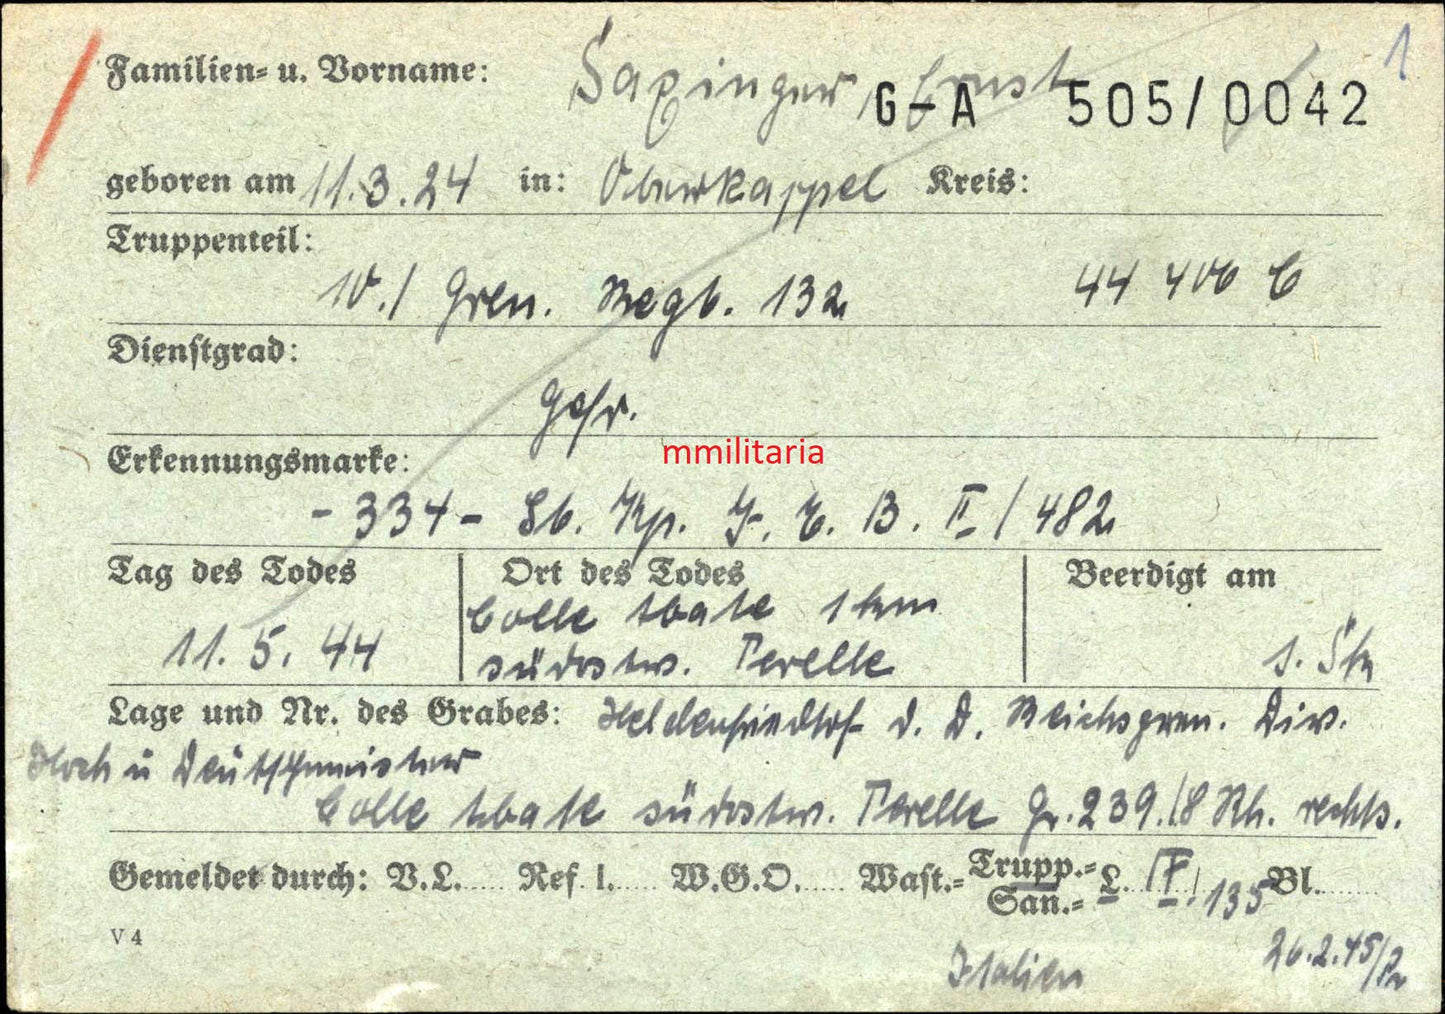 1
Familien= u. Vorname: Saxinger, Ernst
G-A 505/0042
geboren am 11.3.24 in: Oberkappel Kreis:
Truppenteil:
10./ Gren. Regt. 132 44 406 C
Dienstgrad:
Gefr.
mmilitaria
Erkennungsmarke:
- 334 - St. Kp. J. E. B. II / 482
Tag des Todes Ort des Todes Beerdigt am
Colle Abate 1 km
11. 5. 44 südostw. Terelle
Lage und Nr. des Grabes: Heldenfriedhof d. D. Reichsgren. Div.
Hoch u Deutschmeister
Colle Abate südostw. Terelle Gr. 239./8 Rh. rechts.
Gemeldet durch: V.L. Ref. 1. W.G.O. Wast.= Trupp.= San.= L. IV / 135 Bl.
V 4
Italien 26.2.45/